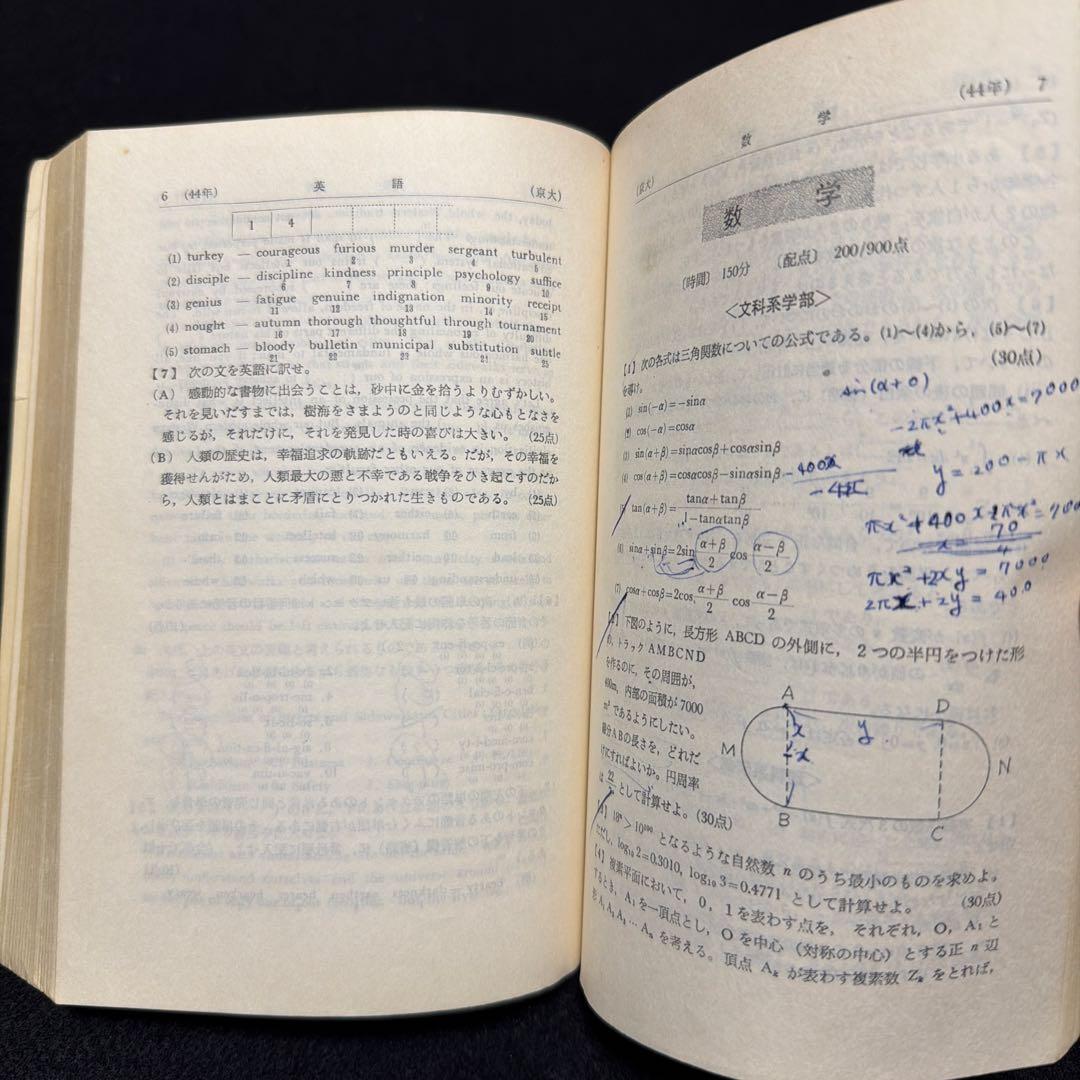 6 (44年) 英 語 (京大)
1 4
(1) turkey — courageous furious murder sergeant turbulent
1 2 3 4 5
(2) disciple — discipline kindness principle psychology suffice
6 7 8 9 10
(3) genius — fatigue genuine indignation minority receipt
11 12 13 14 15
(4) nought — autumn thorough thoughtful through tournament
16 17 18 19 20
(5) stomach — bloody bulletin municipal substitution subtle
21 22 23 24 25
【7】 次の文を英語に訳せ。
(A) 感動的な書物に出会うことは，砂中に金を拾うよりむずかしい。
それを見いだすまでは，樹海をさまようのと同じような心もとなさを
感じるが，それだけに，それを発見した時の喜びは大きい。 (25点)
(B) 人類の歴史は，幸福追求の軌跡だともいえる。だが，その幸福を
獲得せんがため，人類最大の悪と不幸である戦争をひき起こすのだか
ら，人類とはまことに矛盾にとりつかれた生きものである。 (25点)
(京大) 数 学 (44年) 7
数 学
〔時間〕 150分 〔配点〕 200/900点
＜文科系学部＞
【1】 次の各式は三角関数についての公式である。(1)〜(4)から，(5)〜(7)
を導け。 (30点)
sin(α+0)
sin(−α)=−sinα
cos(−α)=cosα
(3) sin(α+β)=sinαcosβ+cosαsinβ
(4) cos(α+β)=cosαcosβ−sinαsinβ
tan(α+β)= tanα+tanβ / 1−tanαtanβ
(6) sinα+sinβ=2sin α+β/2 cos α−β/2
(7) cosα+cosβ=2cos α+β/2 cos α−β/2
−2πx²+400x=7000
−400x
y=200−πx
x= 70
4
πx²+2xy=7000
2πx+2y=400
【2】 下図のように，長方形 ABCD の外側に，2つの半円をつけた形
の，トラック AMBCND
を作るのに，その周囲が，
400m，内部の面積が 7000
m² であるようにしたい。
線分ABの長さを，どれだ
けにすればよいか。円周率
は 22/7 として計算せよ。(30点)
A D
x y
M N
x
B C
【3】 18ⁿ>10¹⁰⁰ となるような自然数 n のうち最小のものを求めよ。
ただし，log₁₀2=0.3010, log₁₀3=0.4771 として計算せよ。 (30点)
【4】 複素平面において，0，1を表わす点を，それぞれ，O，A₁と
するとき，A₁を一頂点とし，Oを中心（対称の中心）とする正 n 辺
形 A₁A₂A₃…Aₙ を考える。頂点 Aₖ が表わす複素数 Zₖ をとれば，